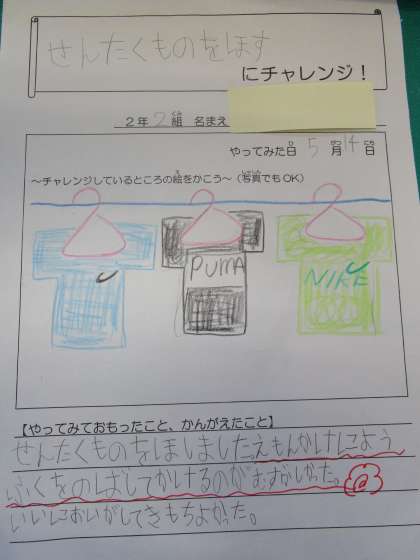 せんたくものをほす
にチャレンジ！
２年２組 名まえ
やってみた日 5月14日
〜チャレンジしているところの絵をかこう〜（写真でもOK）
PUMA
NIKE
【やってみておもったこと、かんがえたこと】
せんたくものをほしました。えもんかけによう
ふくをのばしてかけるのがむずかしかった。
いいにおいがしてきもちよかった。